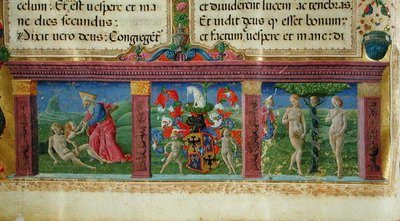 celum: Et est uespere et ma
ne dies secundus:
Dixit uero deus: Congregēt
et diuiderem lucem ac tenebras.
Et uidit deus qͥ esset bonum:
et factum uespere et mane: di